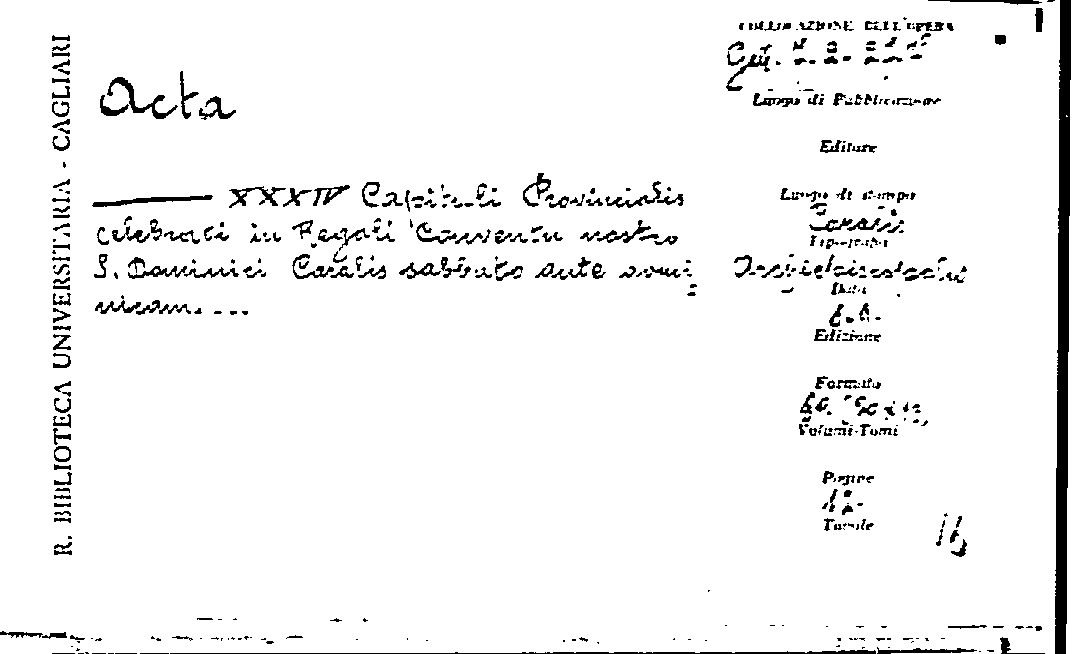 R. BIBLIOTECA UNIVERSITARIA - CAGLIARI
Acta
XXXIV Capituli Provincialis
celebrati in Regali Conventu nostro
S. Dominici Caralis sabbato ante domi
nicam....
COLLOCAZIONE DELL'OPERA
Luogo di Pubblicazione
Editore
Luogo di stampa
Carali
Tipografia
Data
Edizione
Formato
Volumi-Tomi
Pagine
12.
Tavole